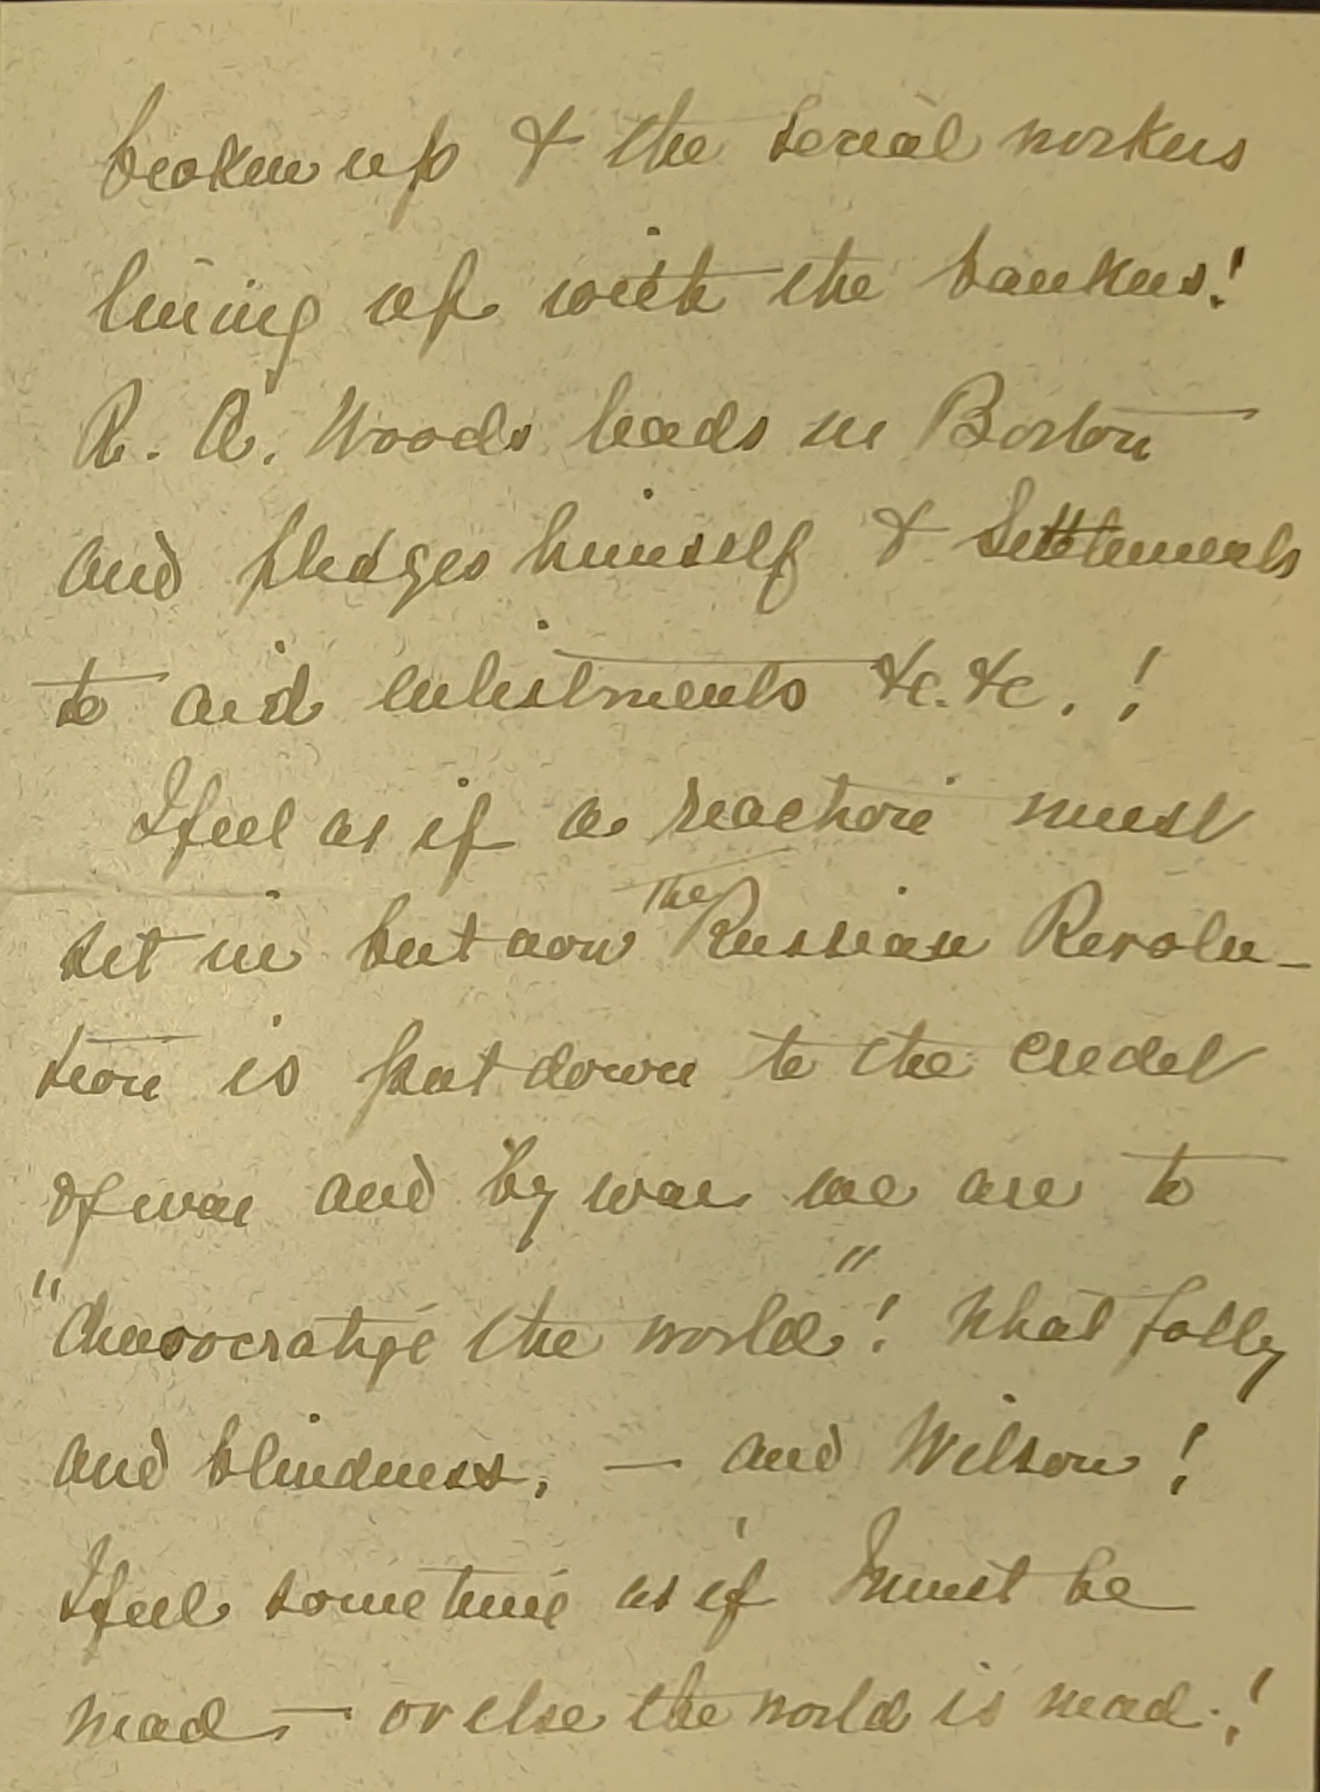 broken up & the social workers
lining up with the bankers!
R. A. Woods leads in Boston
and pledges himself & Settlements
to aid enlistments &c. &c. !
I feel as if a reaction must
set in but now the Russian Revolu-
tion is put down to the credit
of war and by war we are to
"democratize the world"! What folly
and blindness, — and Wilson!
I feel sometime as if I must be
mad — or else the world is mad!